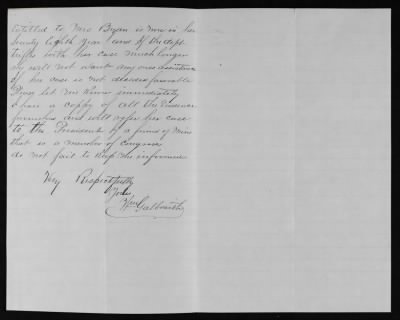 entitled to Mrs Bryan is now in her
Seventy Eighth year and if the dept
trifles with her case much longer
she will not want any ones assistance
if her case is not decided favorable
Please let me know immediately
I have a copy of all the Evidence
furnished and will refer her case
to the President by a friend of mine
that is a member of congress
do not fail to keep me informed
Very Respectfully
Yours
Wm Galbraith